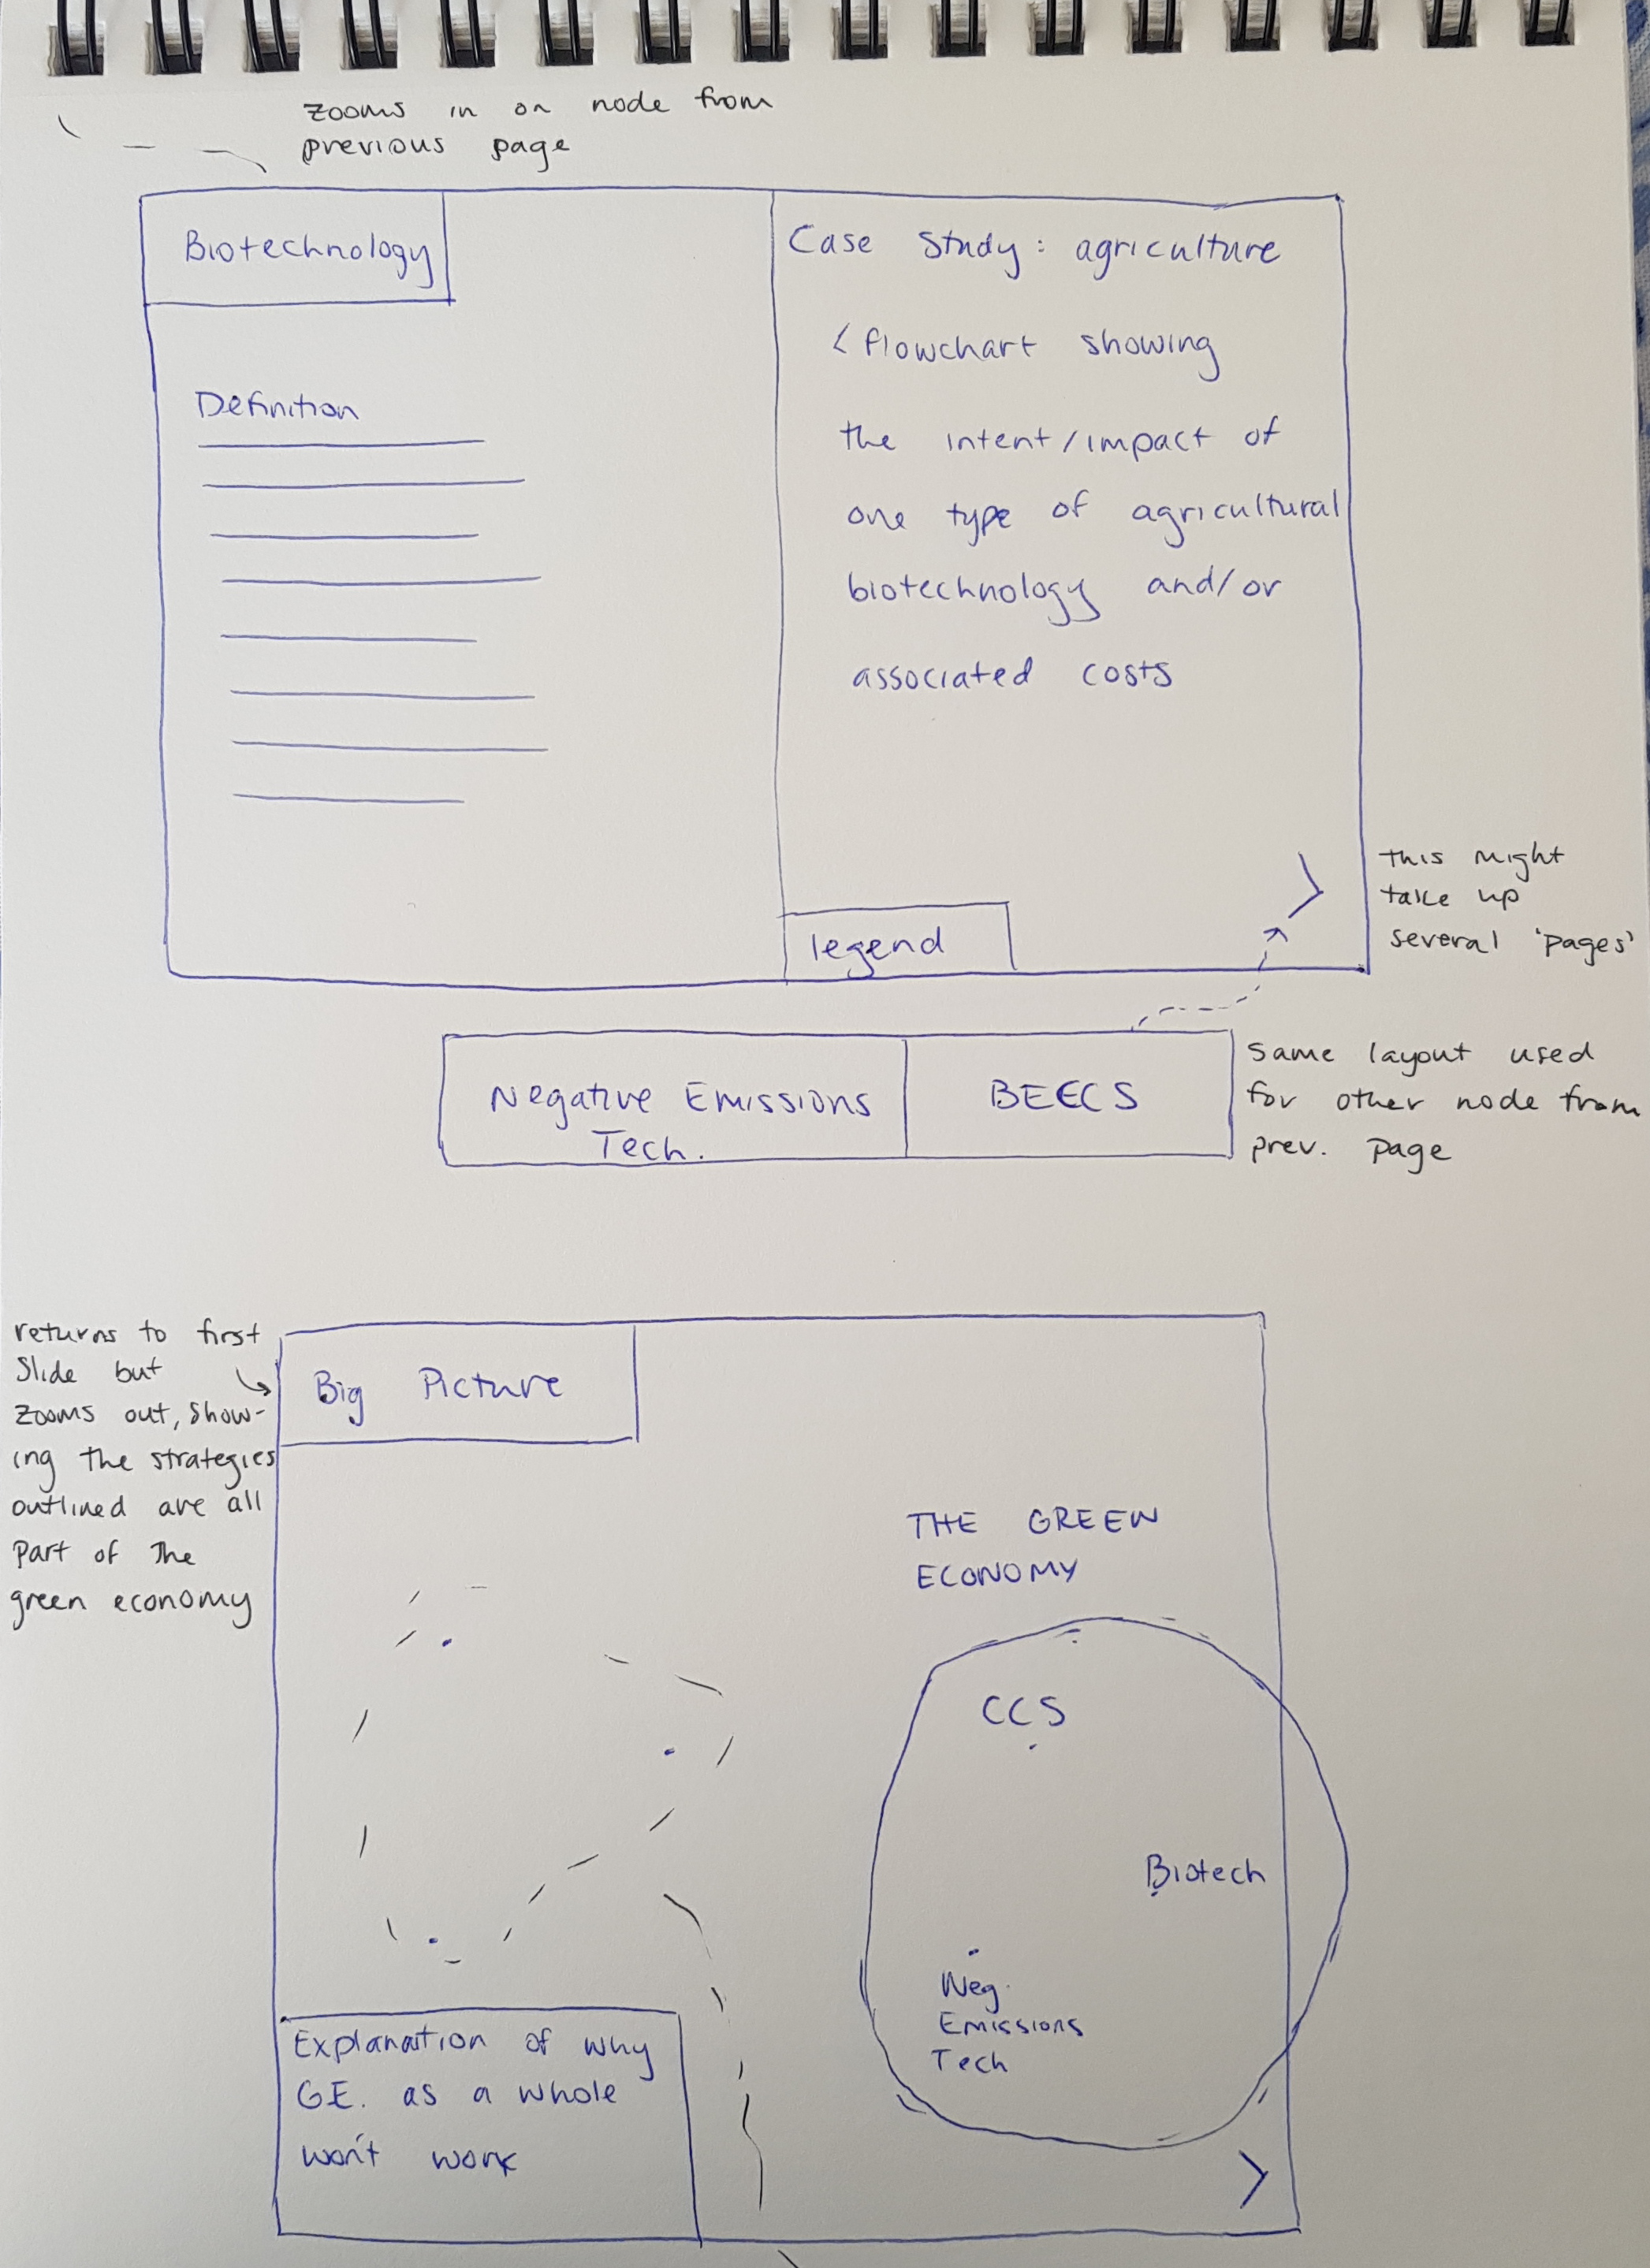 zooms in on node from
previous page
Biotechnology
Definition
Case Study: agriculture
< flowchart showing
the intent/impact of
one type of agricultural
biotechnology and/or
associated costs
legend
this might
take up
several 'pages'
Negative Emissions
Tech.
BEECS
Same layout used
for other node from
prev. page
returns to first
slide but
zooms out, show-
ing the strategies
outlined are all
part of the
green economy
Big Picture
THE GREEN
ECONOMY
CCS
Biotech
Neg.
Emissions
Tech
Explanation of why
G.E. as a whole
won't work